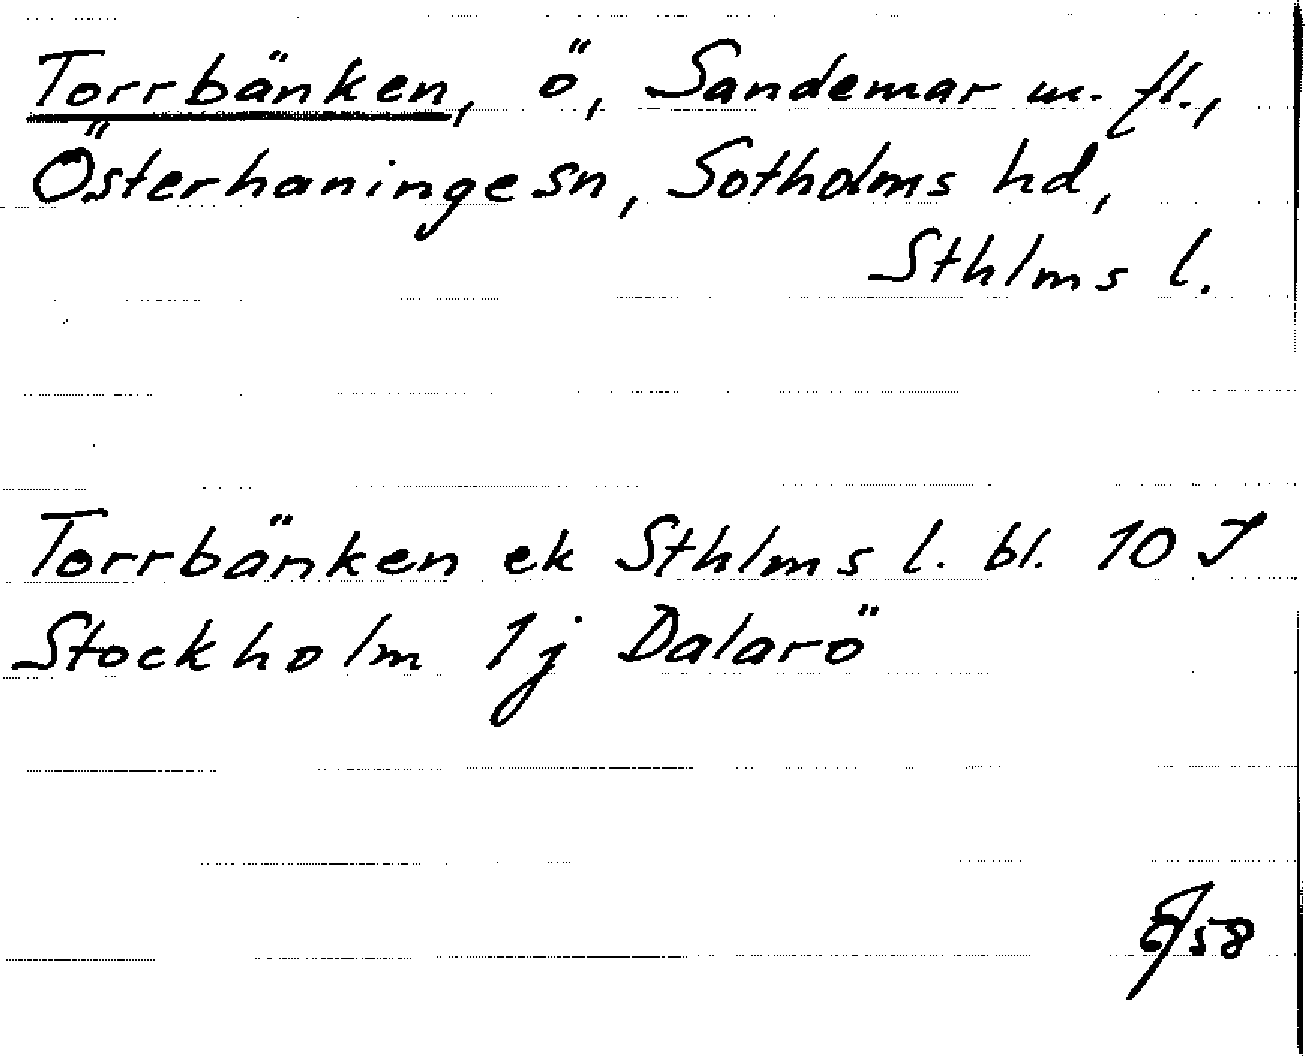 Torrbänken, ö, Sandemar m. fl.,
Österhaninge sn, Sotholms hd,
Sthlms l.
Torrbänken ek Sthlms l. bl. 10 J
Stockholm 1j Dalarö
58